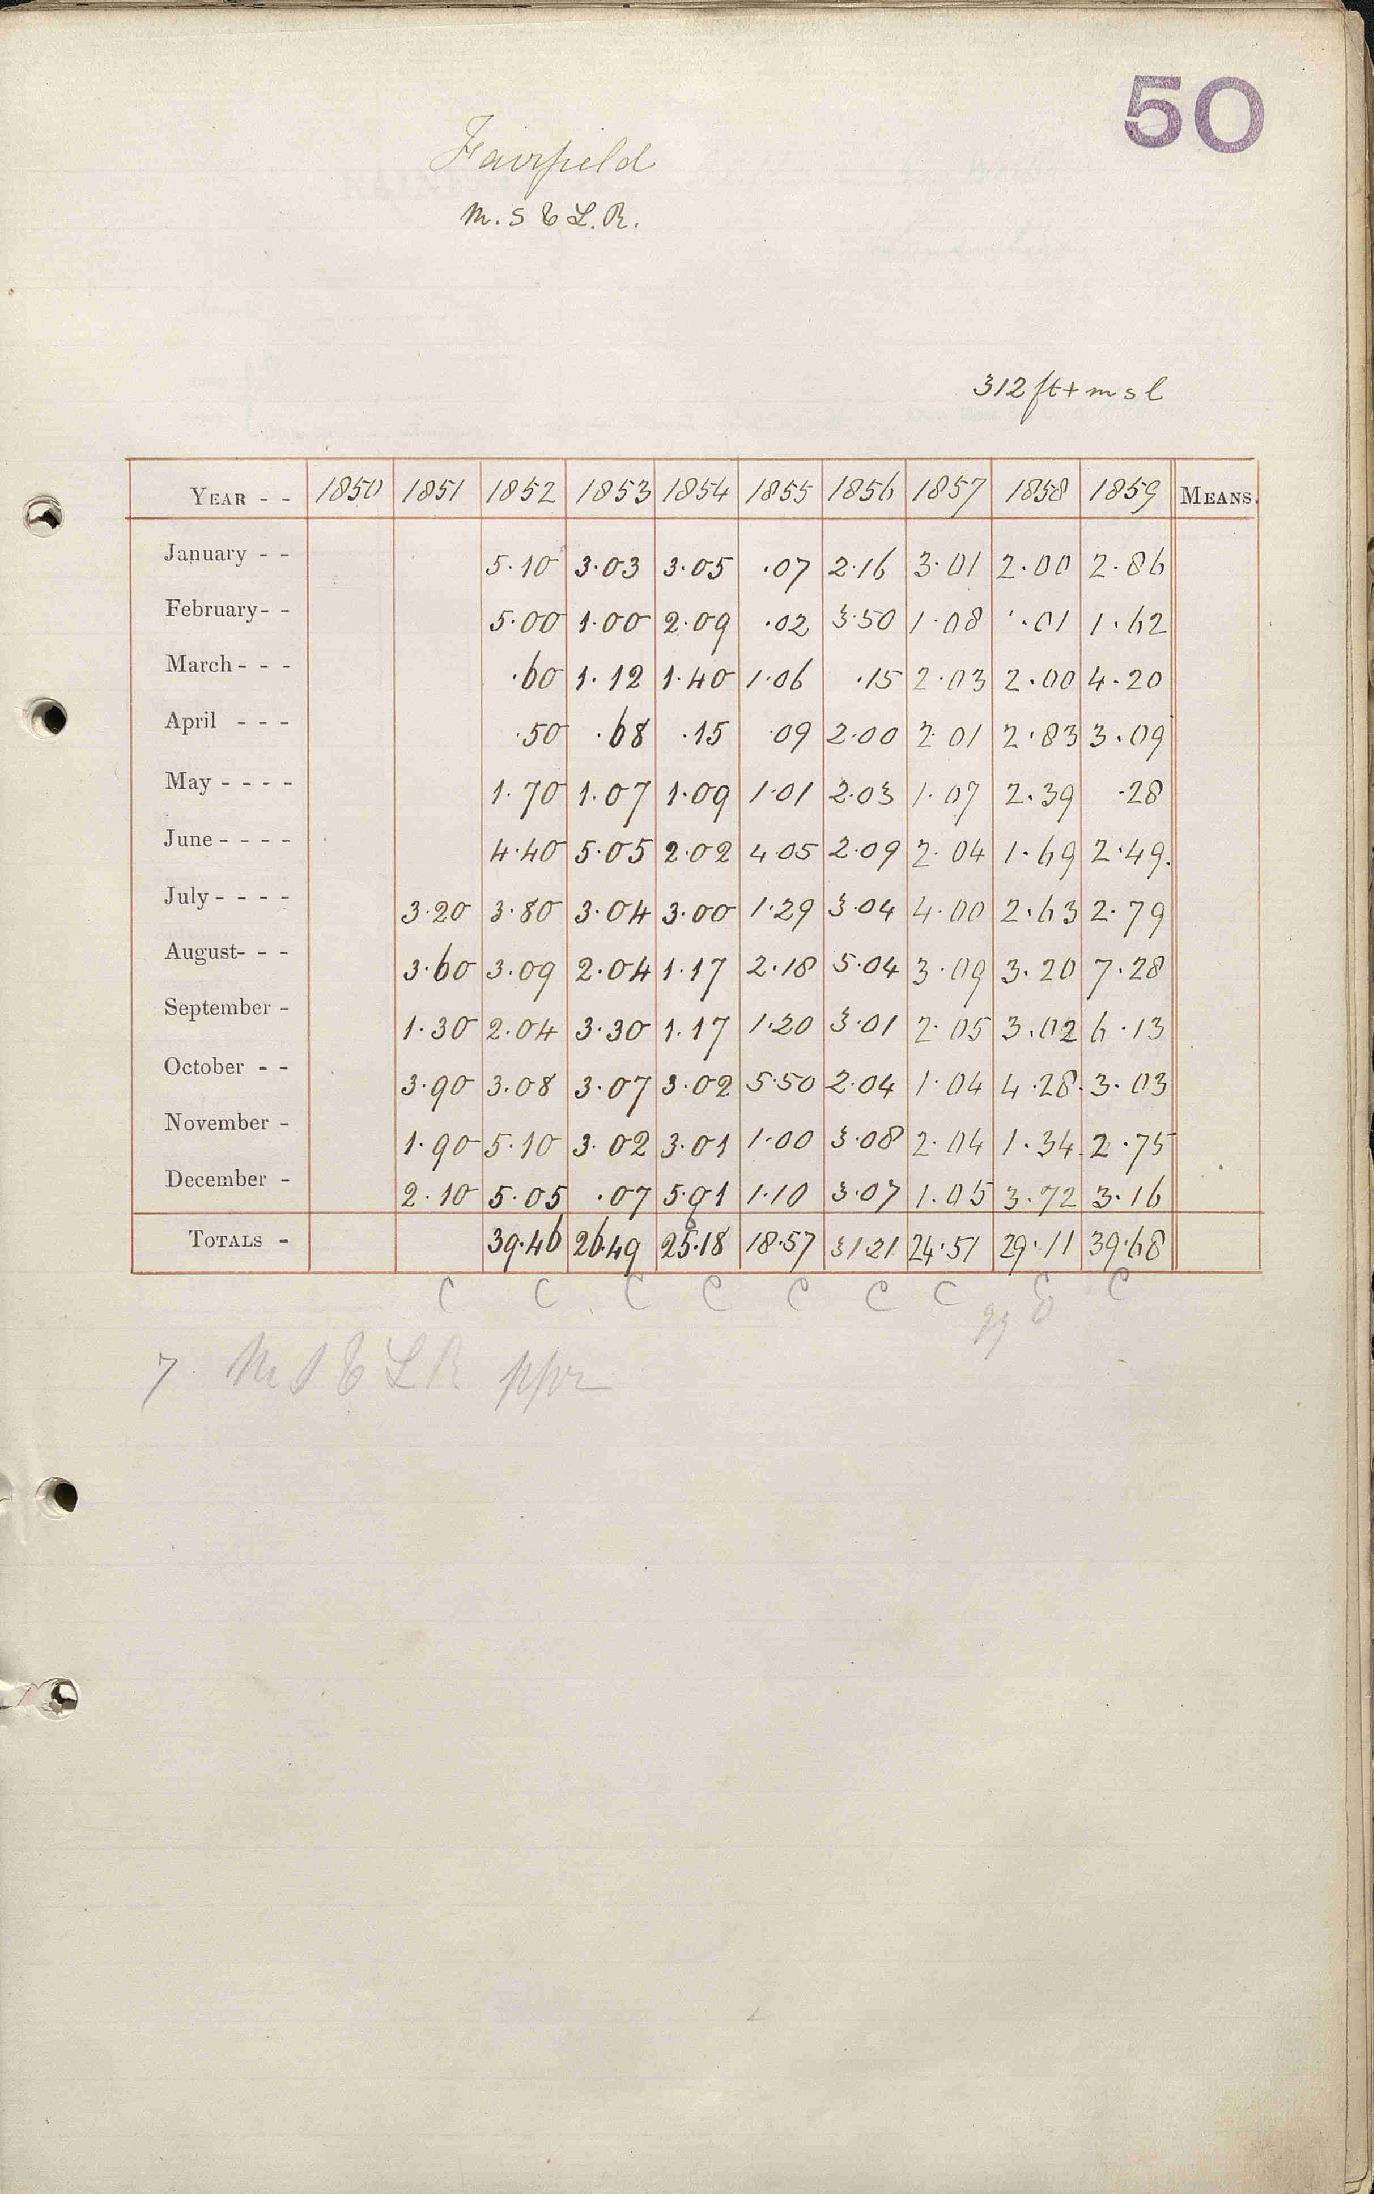 50
Fairfield
M. S & L. R.
312 ft + m s l
YEAR - - 1850 1851 1852 1853 1854 1855 1856 1857 1858 1859 MEANS.
January - - 5.10 3.03 3.05 .07 2.16 3.01 2.00 2.86
February - - 5.00 1.00 2.09 .02 3.50 1.08 .01 1.62
March - - - .60 1.12 1.40 1.06 .15 2.03 2.00 4.20
April - - - .50 .68 .15 .09 2.00 2.01 2.83 3.09
May - - - - 1.70 1.07 1.09 1.01 2.03 1.07 2.39 .28
June - - - - 4.40 5.05 2.02 4.05 2.09 2.04 1.69 2.49.
July - - - - 3.20 3.80 3.04 3.00 1.29 3.04 4.00 2.63 2.79
August - - - 3.60 3.09 2.04 1.17 2.18 5.04 3.09 3.20 7.28
September - 1.30 2.04 3.30 1.17 1.20 3.01 2.05 3.02 6.13
October - - 3.90 3.08 3.07 3.02 5.50 2.04 1.04 4.28 3.03
November - 1.90 5.10 3.02 3.01 1.00 3.08 2.04 1.34 2.75
December - 2.10 5.05 .07 5.01 1.10 3.07 1.05 3.72 3.16
TOTALS - 39.46 26.49 25.18 18.57 31.21 24.51 29.11 39.68
C C C C C C C C C
7 M S & L R